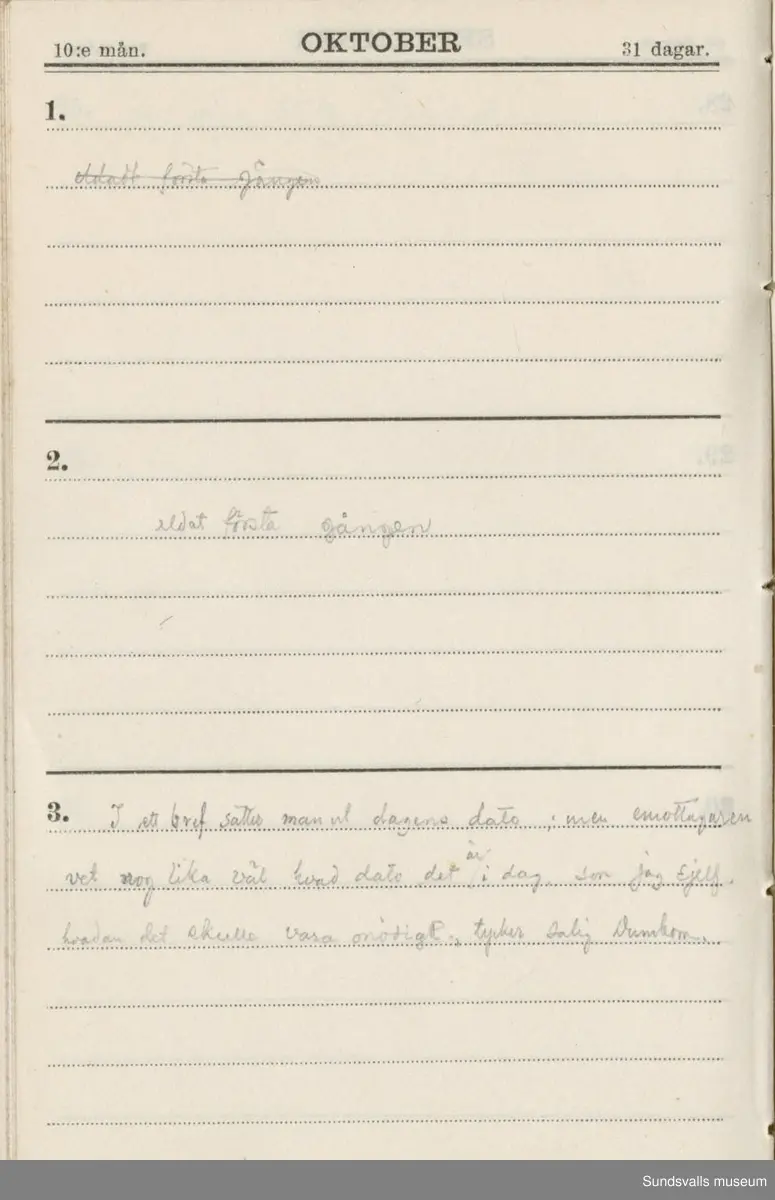 10:e mån. OKTOBER 31 dagar.
1.
eldadt första gången
2.
eldat första gången
3. I ett bref sätter man ut dagens dato ; men emottagaren
vet nog lika väl hvad dato det är i dag som jag sjelf.
hvadan det skulle vara onödigt, tycker salig Dumkom.
Sundsvalls museum